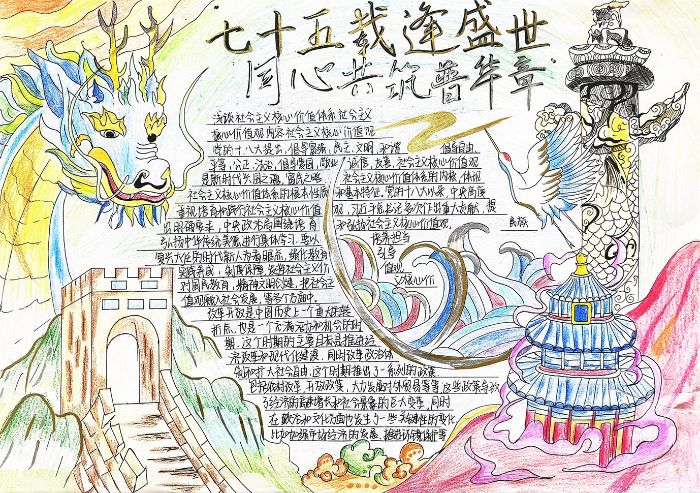 七十五载逢盛世
同心共筑普华章
浅谈社会主义核心价值体系社会主义
核心价值观内容社会主义核心价值观
党的十八大提出,倡导富强、民主、文明、和谐
倡导自由、
平等、公正、法治,倡导爱国、敬业、诚信、友善,社会主义核心价值观
社会主义核心价值体系的内核,体现
社会主义核心价值体系的根本性质
和基本特征,党的十八以来,中央高度
重视培育和践行社会主义核心价值
观,习近平总书记多次作出重大贡献,提
出明确要求,中央政治局围绕培育
和弘扬社会主义核心价值观
弘扬中华传统美德进行集体学习,要以
培养担当
民族
复兴大任的时代新人为着眼点,强化教育
引导
实践养成,制度保障,发挥社会主义价
值观
对国民教育,精神文明创建,把社会主
义核心价
值观融入社会发展,等各个方面中。
改革开放是中国历史上一个重大转
折点,也是一个充满活力和机会的时
期,这个时期的主要目标是推进经
济改革和现代化建设,同时改革政治体
制和扩大社会自由,这个时期推出了一系列的政策
包括农村改革,开放政策,大力发展对外贸易等等,这些政策
在政治和文化方面也发生了一些